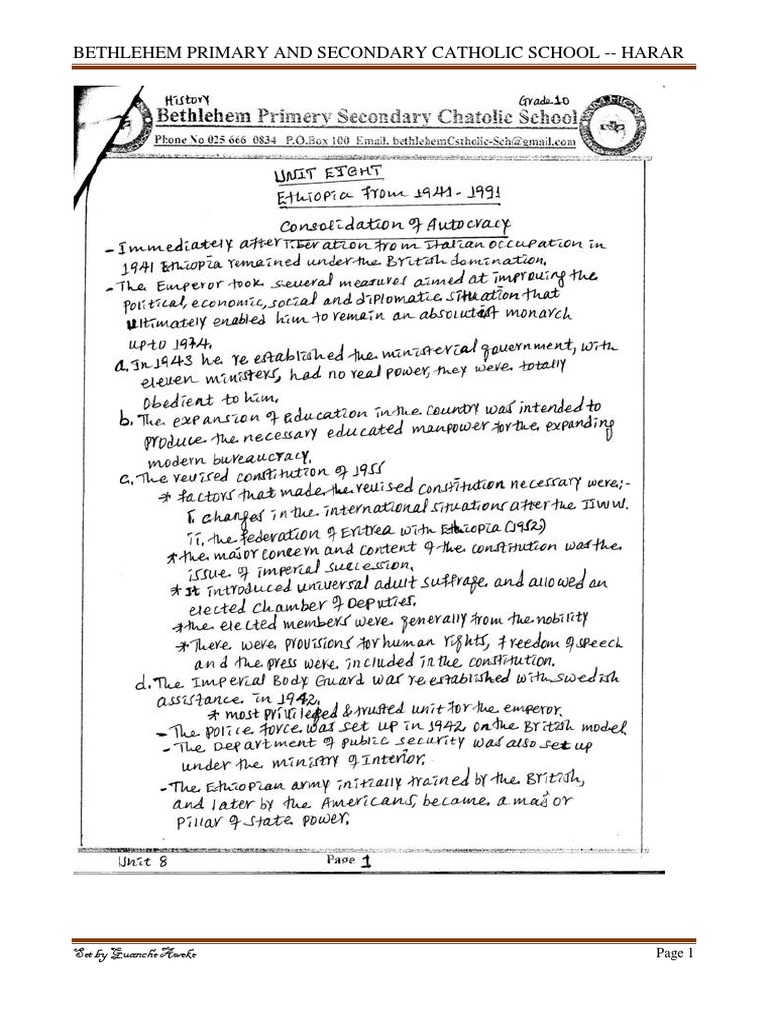 BETHLEHEM PRIMARY AND SECONDARY CATHOLIC SCHOOL -- HARAR
History Grade 10
Bethlehem Primery Secondary Chatolic School
Phone No 025 666 0834 P.O.Box 100 Email. bethlehemCstholic-Sch@gmail.com
UNIT EIGHT
Ethiopia From 1941 - 1991
Consolidation of Autocracy
- Immediately after liberation from Italian occupation in
1941 Ethiopia remained under the British domination.
- The Emperor took several measures aimed at improving the
political, economic, social and diplomatic situation that
ultimately enabled him to remain an absolutist monarch
up to 1974.
a. In 1943 he re established the ministerial government, with
eleven ministers, had no real power, they were totally
obedient to him.
b. The expansion of Education in the country was intended to
produce the necessary educated manpower for the expanding
modern bureaucracy.
c. The revised constitution of 1955
* factors that made the revised constitution necessary were;-
i. changes in the international situations after the IIWW.
ii. the federation of Eritrea with Ethiopia (1952)
* the major concern and content of the constitution was the
issue of imperial succession.
* It introduced universal adult suffrage and allowed an
elected chamber of Deputies.
* the elected members were generally from the nobility
* There were provisions for human rights, freedom of speech
and the press were included in the constitution.
d. The Imperial Body Guard was re established with swedish
assistance in 1942.
* most privileged & trusted unit for the emperor.
- The police force was set up in 1942 on the British model.
- The Department of public security was also set up
under the ministry of Interior.
- The Ethiopian army initially trained by the British,
and later by the Americans, became a major
pillar of state power.
Unit 8 Page 1
Set by Guanche Aweke Page 1